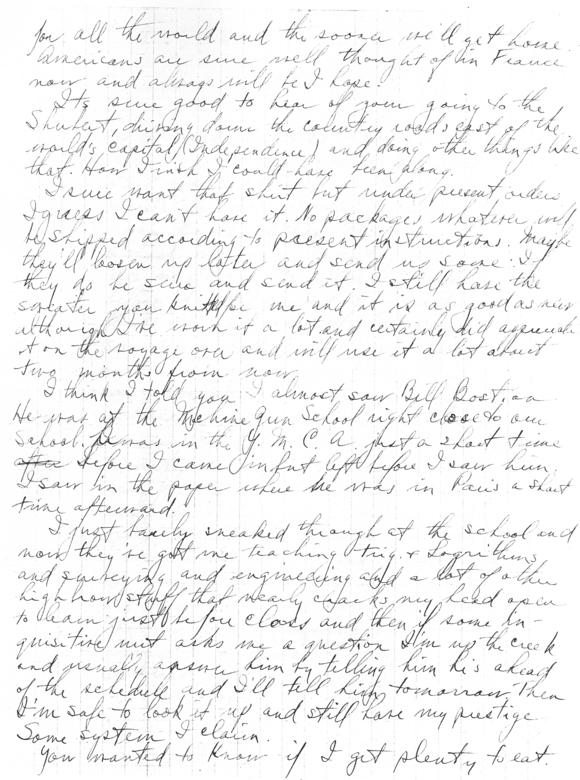 for all the world and the sooner we'll get home.
Americans are sure well thought of in France
now and always will be I hope.
Its sure good to hear of your going to the
Shubert, driving down the country roads east of the
world's capital (Independence) and doing other things like
that. How I wish I could have been along.
I sure want that shirt but under present orders
I guess I can't have it. No packages whatever will
be shipped according to present instructions. Maybe
they'll loosen up later and send us some. If
they do be sure and send it. I still have the
sweater you knitted me and it is as good as new
although I've worn it a lot and certainly did appreciate
it on the voyage over and will use it a lot about
two months from now.
I think I told you I almost saw Bill Bostian
He was at the Mchine Gun School right close to our
School. He was in the Y.M.C.A. just a short time
after before I came in but left before I saw him.
I saw in the paper where he was in Paris a short
time afterward.
I just barely sneaked through at the school and
now they've got me teaching trig. + Logrithms
and surveying and engineering and a lot of other
high brow stuff that nearly cracks my head open
to learn just before class and then if some in-
quisitive nut asks me a question I'm up the creek
and usually answer him by telling him he's ahead
of the schedule and I'll tell him tomorrow, then
I'm safe to look it up and still have my prestige
Some system I claim.
You wanted to know if I get plenty to eat.